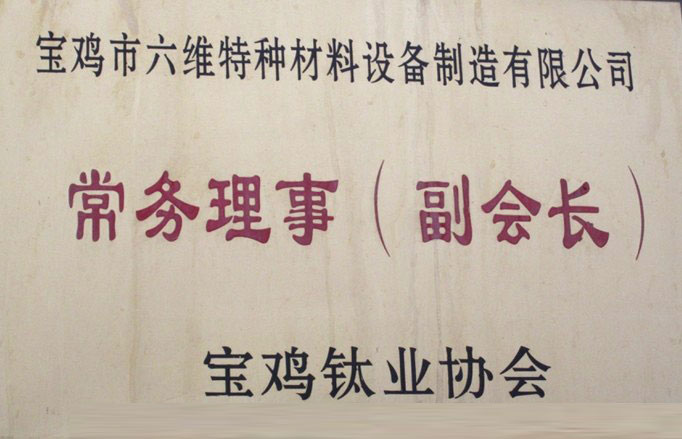 宝鸡市六维特种材料设备制造有限公司
常务理事（副会长）
宝鸡钛业协会